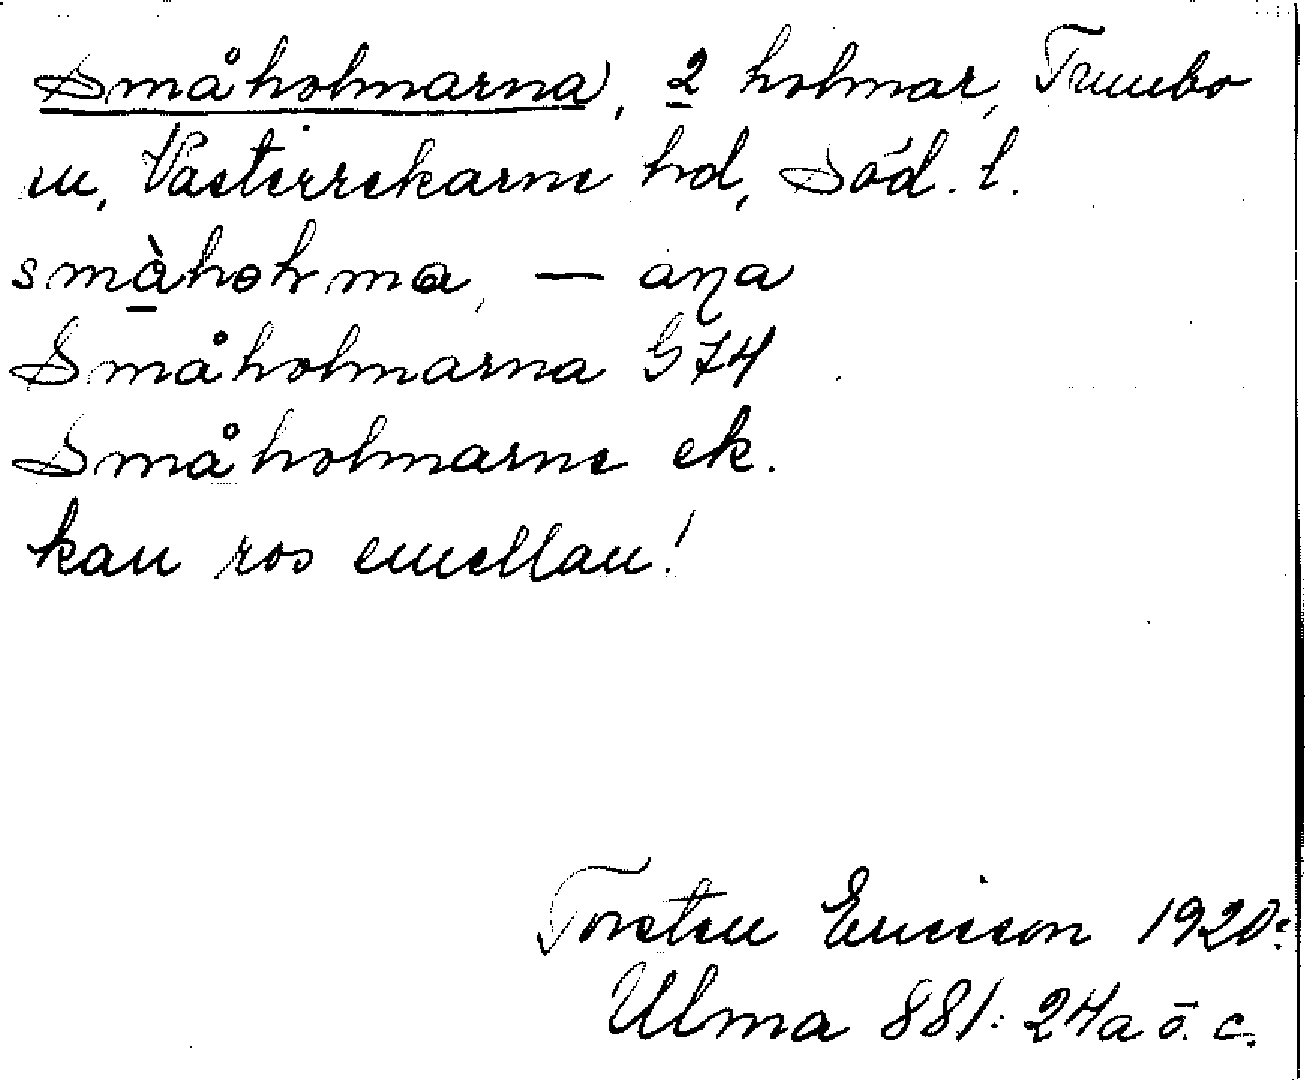 Småholmarna, 2 holmar, Tumbo
sn, Västerrekarne hd, Söd. l.
småhoḷma, – aṇa
Småholmarna G74
Småholmarne ek.
kan ros emellan!
Torsten Ericsson 1920.
Ulma 881: 24a o. c.